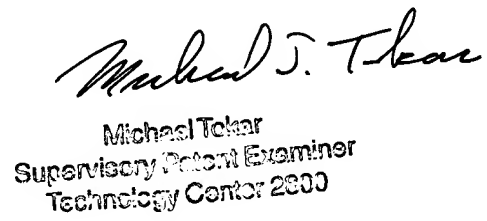 Michael J. Tokar
Michael Tokar
Supervisory Patent Examiner
Technology Center 2800